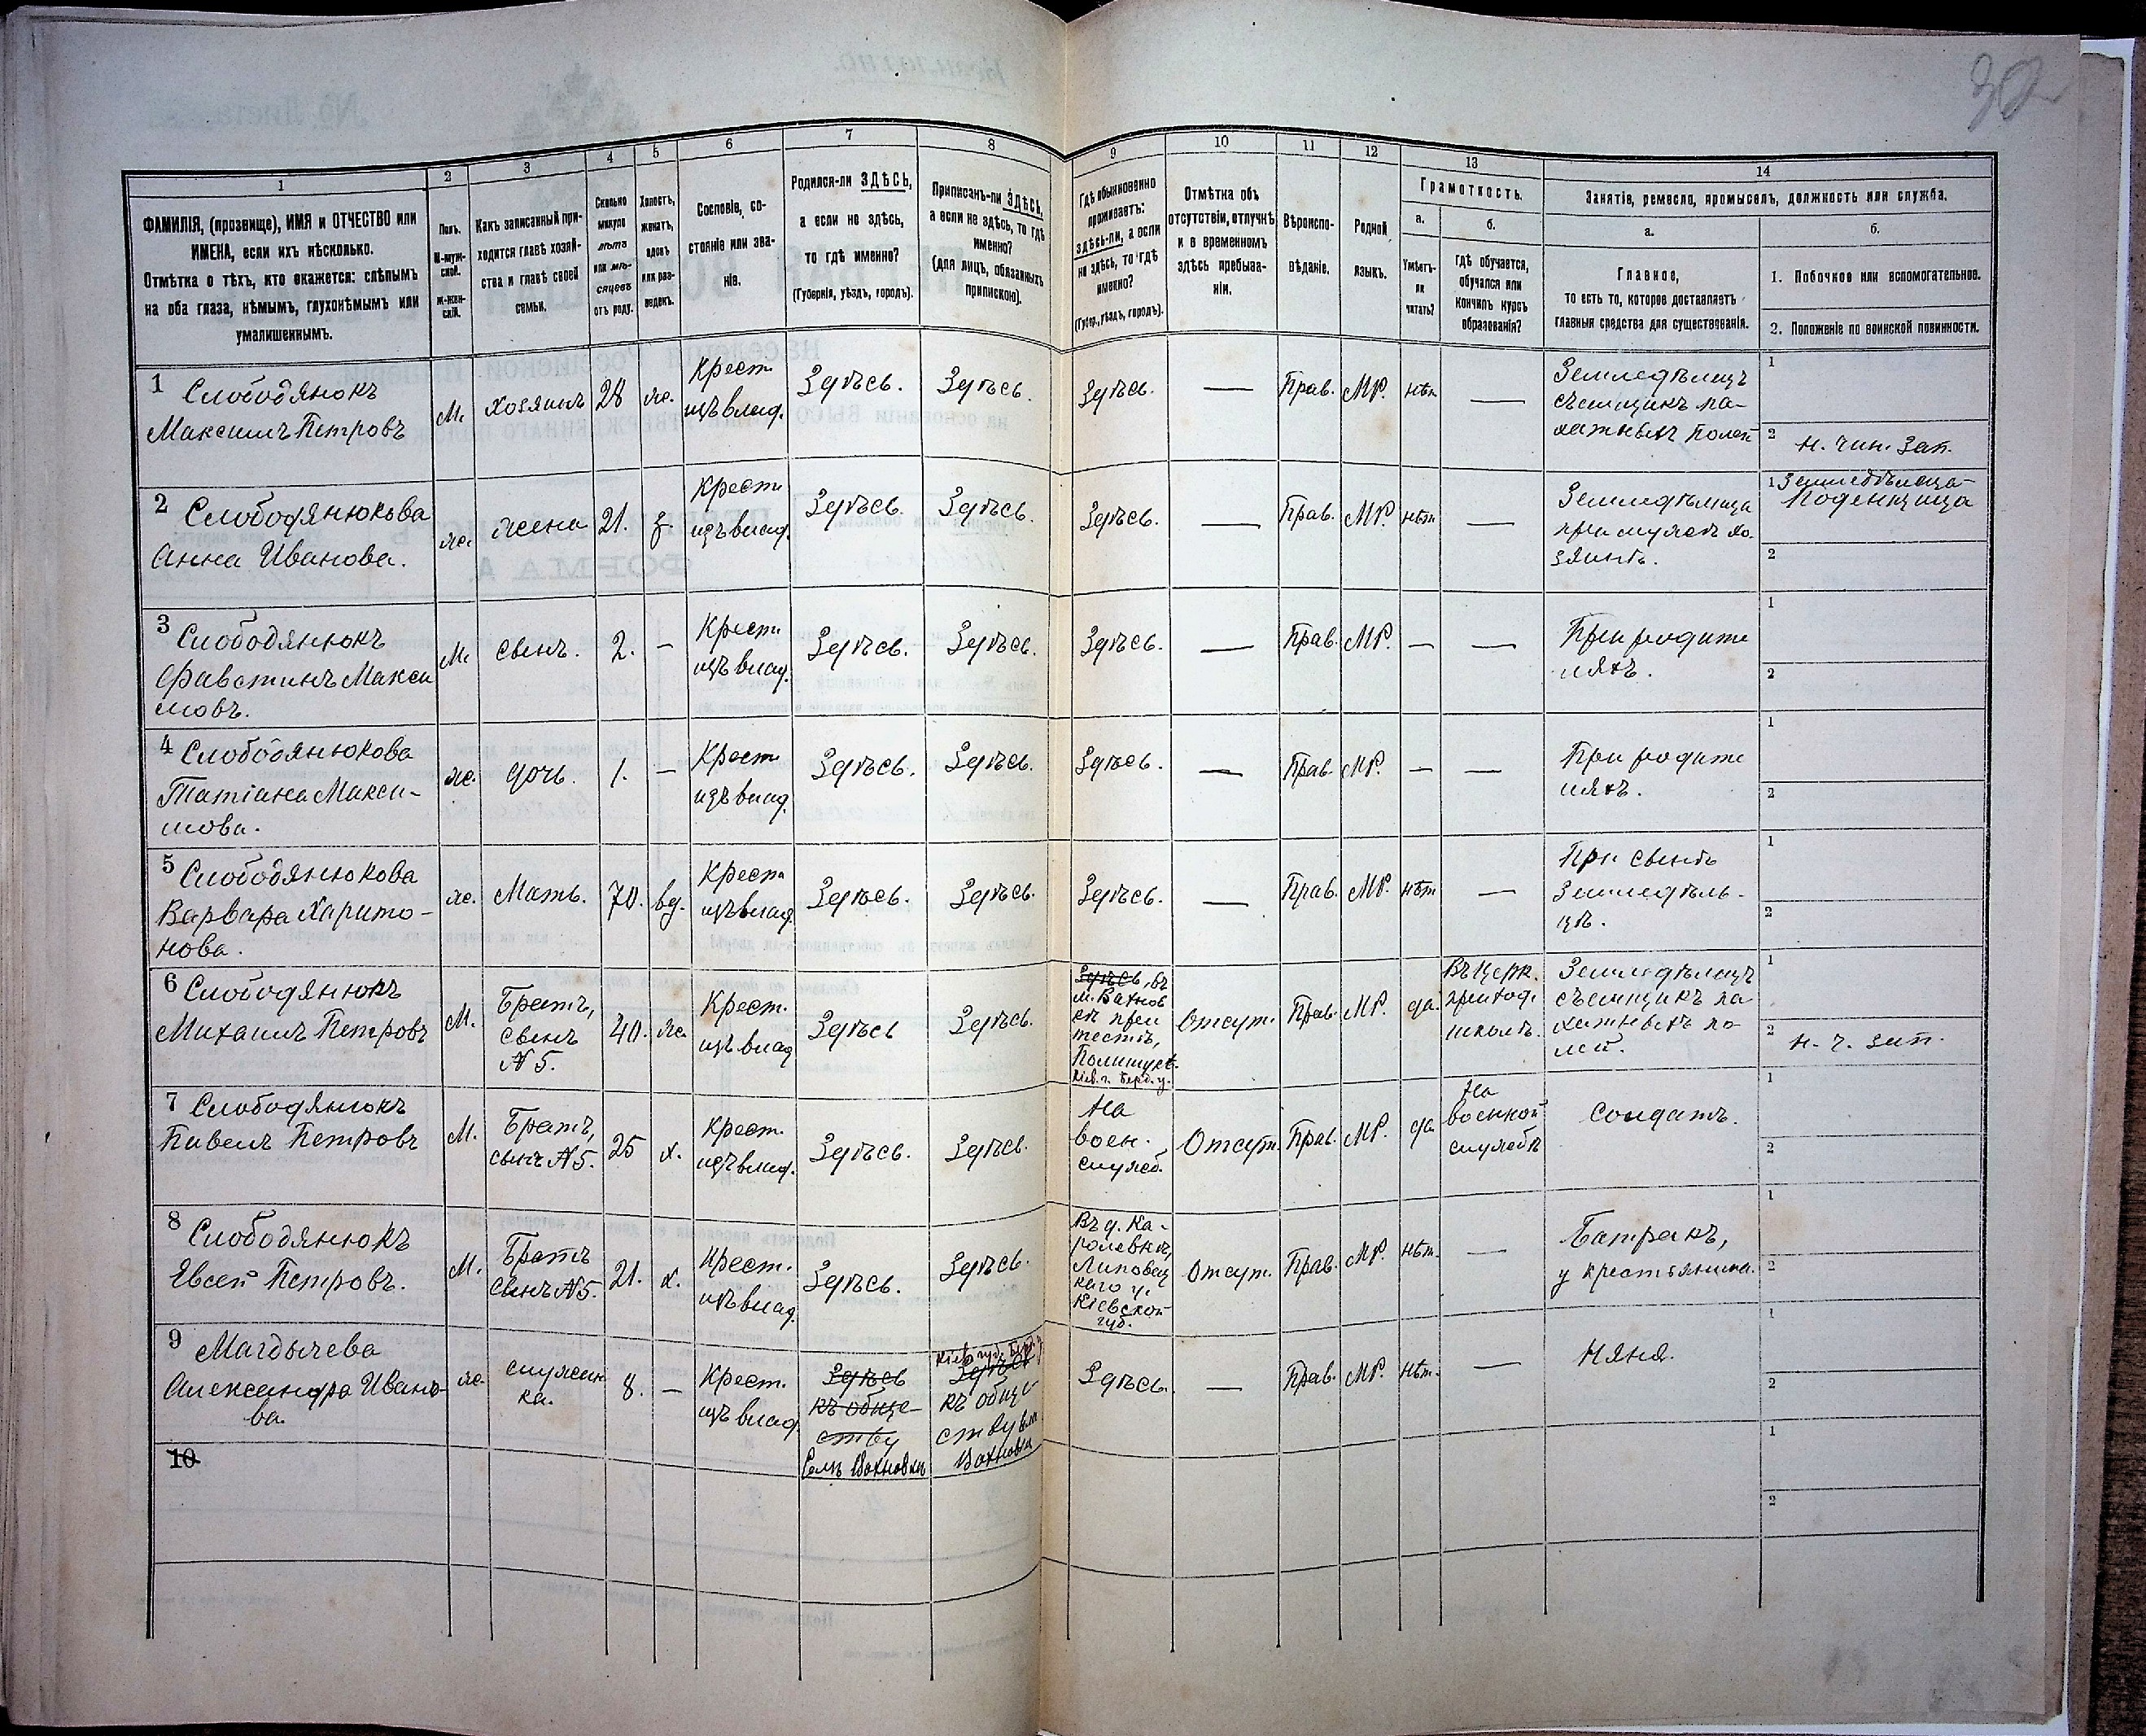 30
1
2
3
4
5
6
7
8
9
10
11
12
13
14
ФАМИЛІЯ, (прозвище), ИМЯ и ОТЧЕСТВО или
ИМЕНА, если ихъ нѣсколько.
Отмѣтка о тѣхъ, кто окажется: слѣпымъ
на оба глаза, нѣмымъ, глухонѣмымъ или
умалишеннымъ.
Полъ.
М-муж-
ской.
ж-жен-
скій.
Какъ записанный при-
ходится главѣ хозяй-
ства и главѣ своей
семьи.
Сколько
минуло
лѣтъ
или мѣ-
сяцевъ
отъ роду.
Холостъ,
женатъ,
вдовъ
или раз-
веденъ.
Сословіе, со-
стояніе или зва-
ніе.
Родился-ли ЗДѢСЬ,
а если не здѣсь,
то гдѣ именно?
(Губернія, уѣздъ, городъ).
Приписанъ-ли ЗДѢСЬ,
а если не здѣсь, то гдѣ
именно?
(для лицъ, обязанныхъ
припискою).
Гдѣ обыкновенно
проживаетъ:
здѣсь-ли, а если
не здѣсь, то гдѣ
именно?
(Губер., уѣздъ, городъ).
Отмѣтка объ
отсутствіи, отлучкѣ
и о временномъ
здѣсь пребыва-
ніи.
Вѣроиспо-
вѣданіе.
Родной
языкъ.
Грамотность.
а.
Умѣетъ-
ли
читать?
б.
гдѣ обучается,
обучался или
кончилъ курсъ
образованія?
Занятіе, ремесло, промыселъ, должность или служба.
а.
Главное,
то есть то, которое доставляетъ
главныя средства для существованія.
б.
1. Побочное или вспомогательное.
2. Положеніе по воинской повинности.
1 Слободянюкъ
Максимъ Петровъ
М.
хозяинъ
28
ж.
Крест.
изъ влад.
Здѣсь.
Здѣсь.
Здѣсь.
—
Прав.
МР.
нѣт
—
Земледѣлецъ
съемщикъ па-
хатныхъ полей
1
2 н. чин. зап.
2 Слободянюкова
Анна Иванова.
ж.
жена
21.
з.
Крест.
изъ влад.
Здѣсь.
Здѣсь.
Здѣсь.
—
Прав.
МР.
нѣт
—
Земледѣлица
при мужѣ хо-
зяинѣ.
1 Земледѣлица-
Поденщица
2
3 Слободянюкъ
Фавстинъ Макси
мовъ.
М.
сынъ.
2.
—
Крест.
изъ влад.
Здѣсь.
Здѣсь.
Здѣсь.
—
Прав.
МР.
—
—
При родите
ляхъ.
1
2
4 Слободянюкова
Татіана Макси-
мова.
ж.
дочь.
1.
—
Крест.
изъ влад.
Здѣсь.
Здѣсь.
Здѣсь.
—
Прав.
МР.
—
—
При родите
ляхъ.
1
2
5 Слободянюкова
Варвара Харито-
нова.
ж.
Мать.
70.
вд.
Крест.
изъ влад.
Здѣсь.
Здѣсь.
Здѣсь.
—
Прав.
МР.
нѣт
—
При сынѣ
Земледѣль-
цѣ.
1
2
6 Слободянюкъ
Михаилъ Петровъ
М.
Братъ,
сынъ
№ 5.
40.
ж.
Крест.
изъ влад
Здѣсь
Здѣсь.
Здѣсь, въ
м. Вахнов
кѣ при
тестѣ,
Кіев. г. Берд. у.
Отсут.
Прав.
МР.
да.
Въ церк.
приход.
школѣ.
Земледѣлецъ
съемщикъ па
хатныхъ по-
лей.
1
2 н. ч. зап.
7 Слободянюкъ
Павелъ Петровъ
М.
Братъ,
сынъ № 5.
25
х.
Крест.
изъ влад.
Здѣсь.
Здѣсь.
На
воен.
служб.
Отсут.
Прав.
МР.
да
На
военной
службѣ
Солдатъ.
1
2
8 Слободянюкъ
Евсей Петровъ.
М.
Братъ
сынъ № 5.
21.
х.
Крест.
изъ влад.
Здѣсь.
Здѣсь.
Въ д. Ка-
ролевкѣ,
Липовец
каго у.
Кіевской
губ.
Отсут.
Прав.
МР.
нѣт.
—
Батракъ,
у крестьянина.
1
2
9 Магдычева
Александра Ивано-
ва.
ж.
служан
ка.
8.
—
Крест.
изъ влад
Здѣсь
къ обще-
ству
Селѣ Вахновкѣ
Кіев. губ. Берд. у
Здѣсь
къ общe
ству
Вахновка
Здѣсь.
—
Прав.
МР.
Нѣт.
—
Няня.
1
2
10
1
2